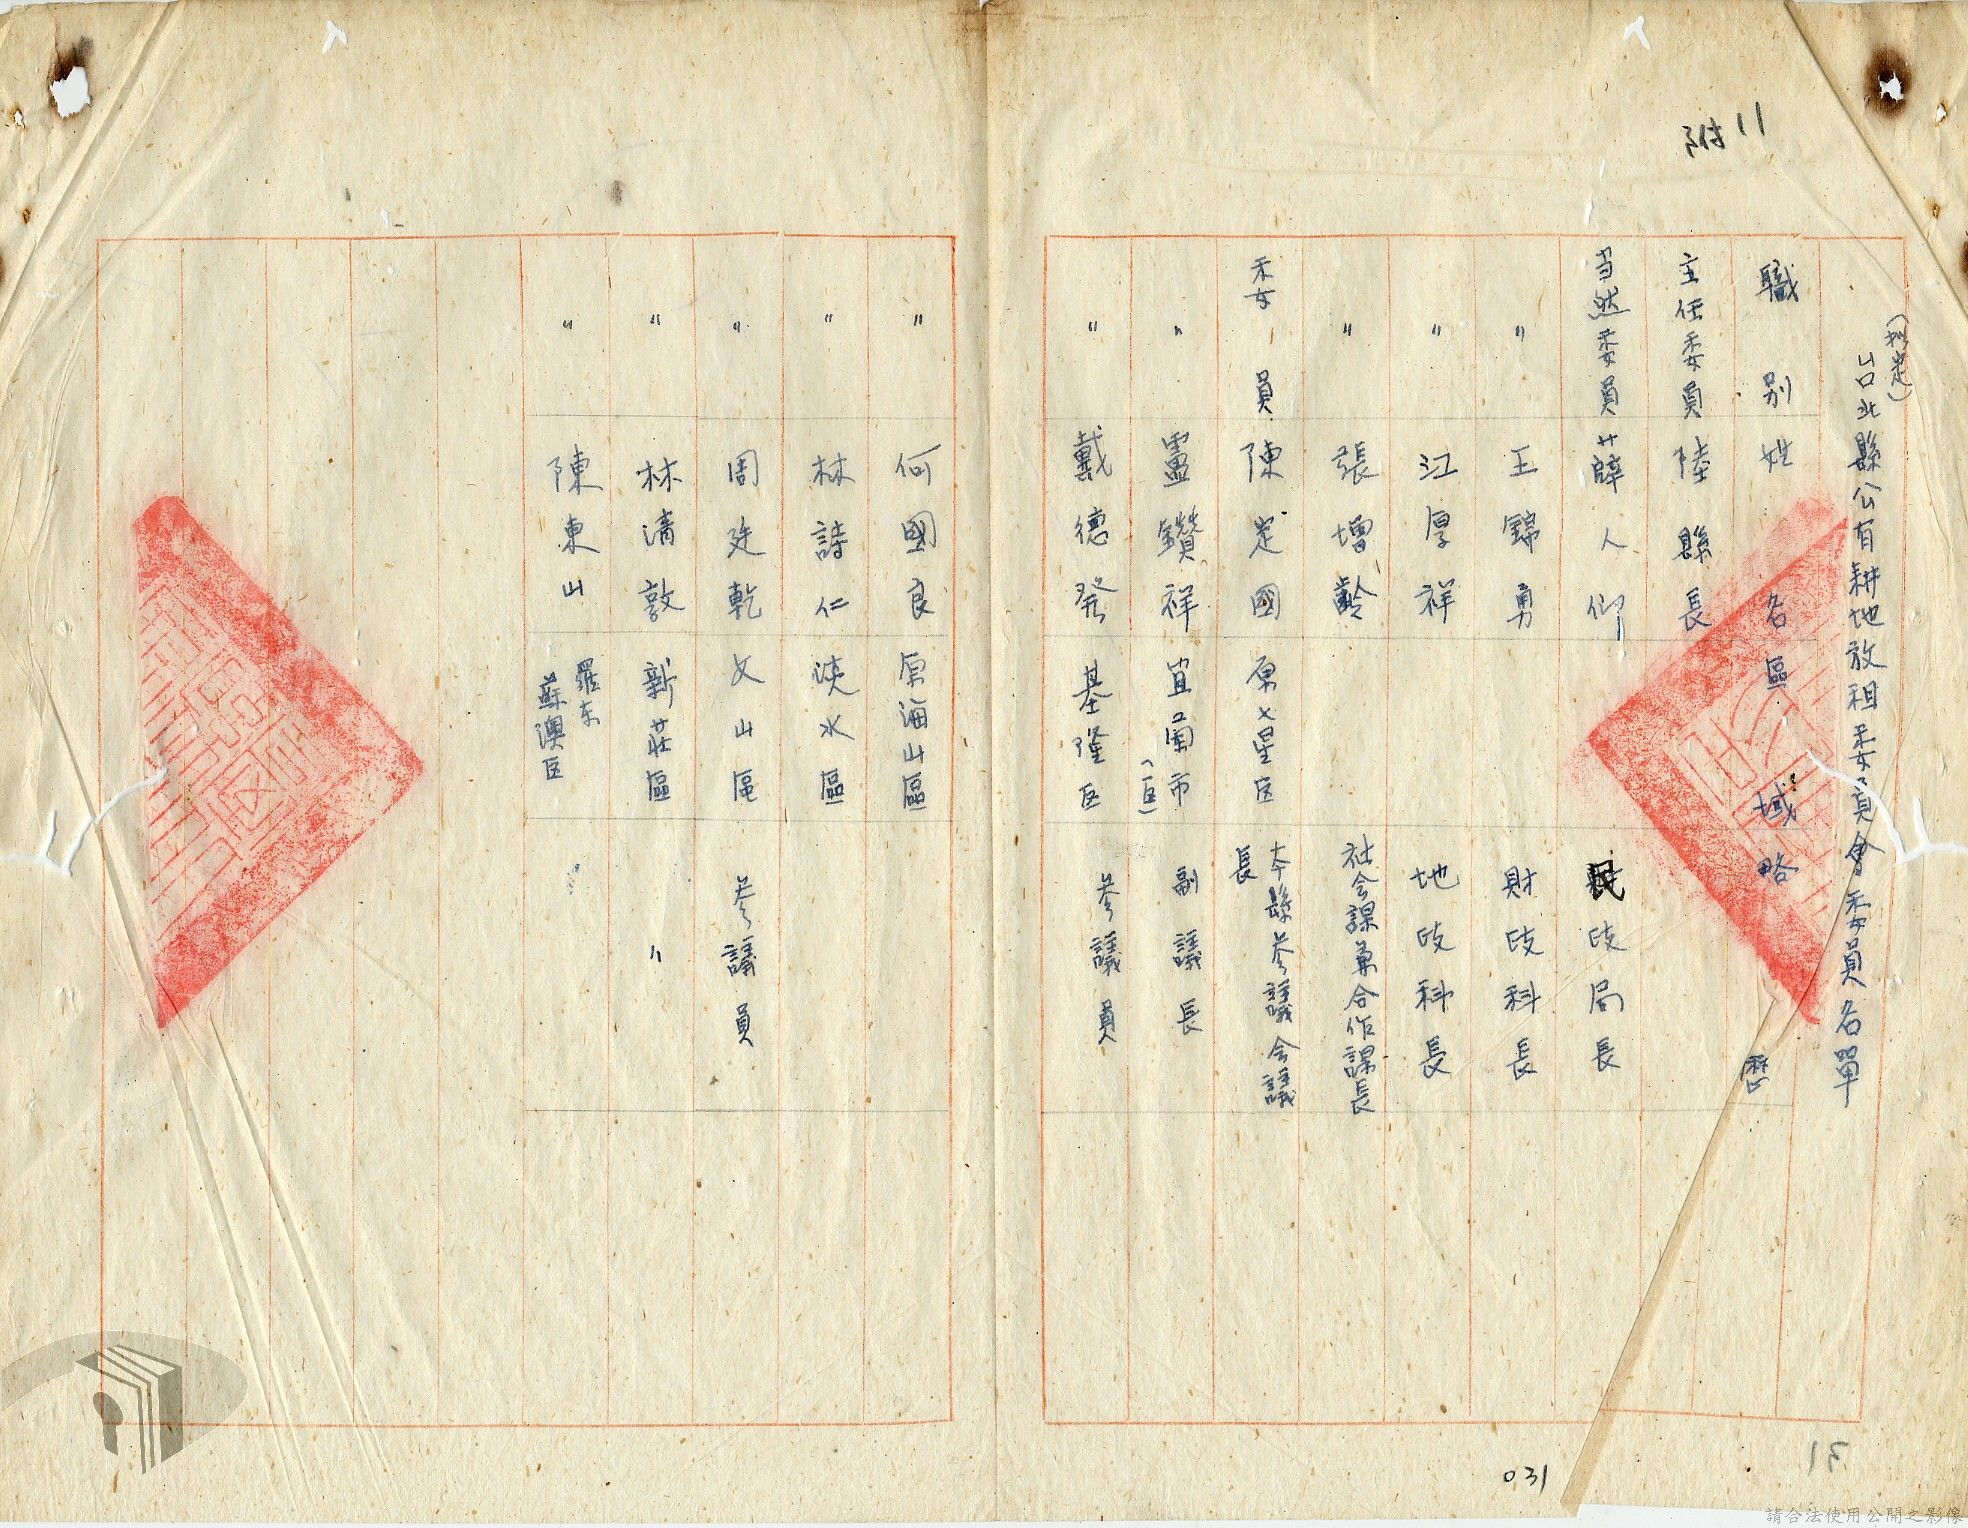 附11
(拟定)
台北縣公有耕地放租委員會委員名單
職別 姓名 區域 略歷
主任委員 陸縣長
当然委員 薛人仰 民政局長
〃 王錦勇 財政科長
〃 江厚祥 地政科長
〃 張增齡 社会課兼合作課長
委員 陳定國 原七星区 本縣參議会議長
〃 盧鑽祥 宜蘭市(区) 副議長
〃 戴德發 基隆区 參議員
〃 何國良 原海山區
〃 林詩仁 淡水區
〃 周延乾 文山區 參議員
〃 林清敦 新莊區 〃
〃 陳東山 羅东蘇澳区
031
31
請合法使用公開之影像